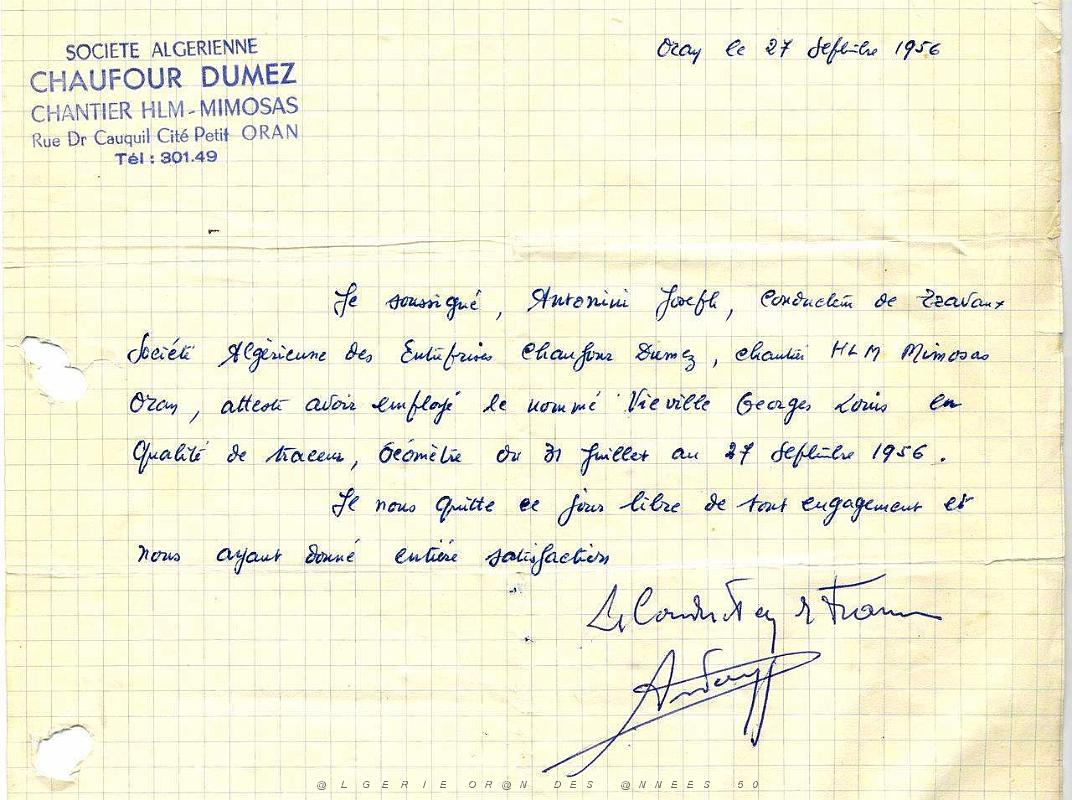 SOCIETE ALGERIENNE
CHAUFOUR DUMEZ
CHANTIER HLM-MIMOSAS
Rue Dr Cauquil Cité Petit ORAN
Tél : 301.49
Oran le 27 Septembre 1956
Je soussigné, Antonini Joseph, Conducteur de Travaux
Société Algérienne des Entreprises Chaufour Dumez, chantier HLM Mimosas
Oran, atteste avoir employé le nommé Vieville Georges Louis en
Qualité de traceur, Géomètre du 31 Juillet au 27 Septembre 1956.
Il nous quitte ce jour libre de tout engagement et
nous ayant donné entière satisfaction
Le Conducteur de Travaux
@LGERIE OR@N DES @NNEES 50